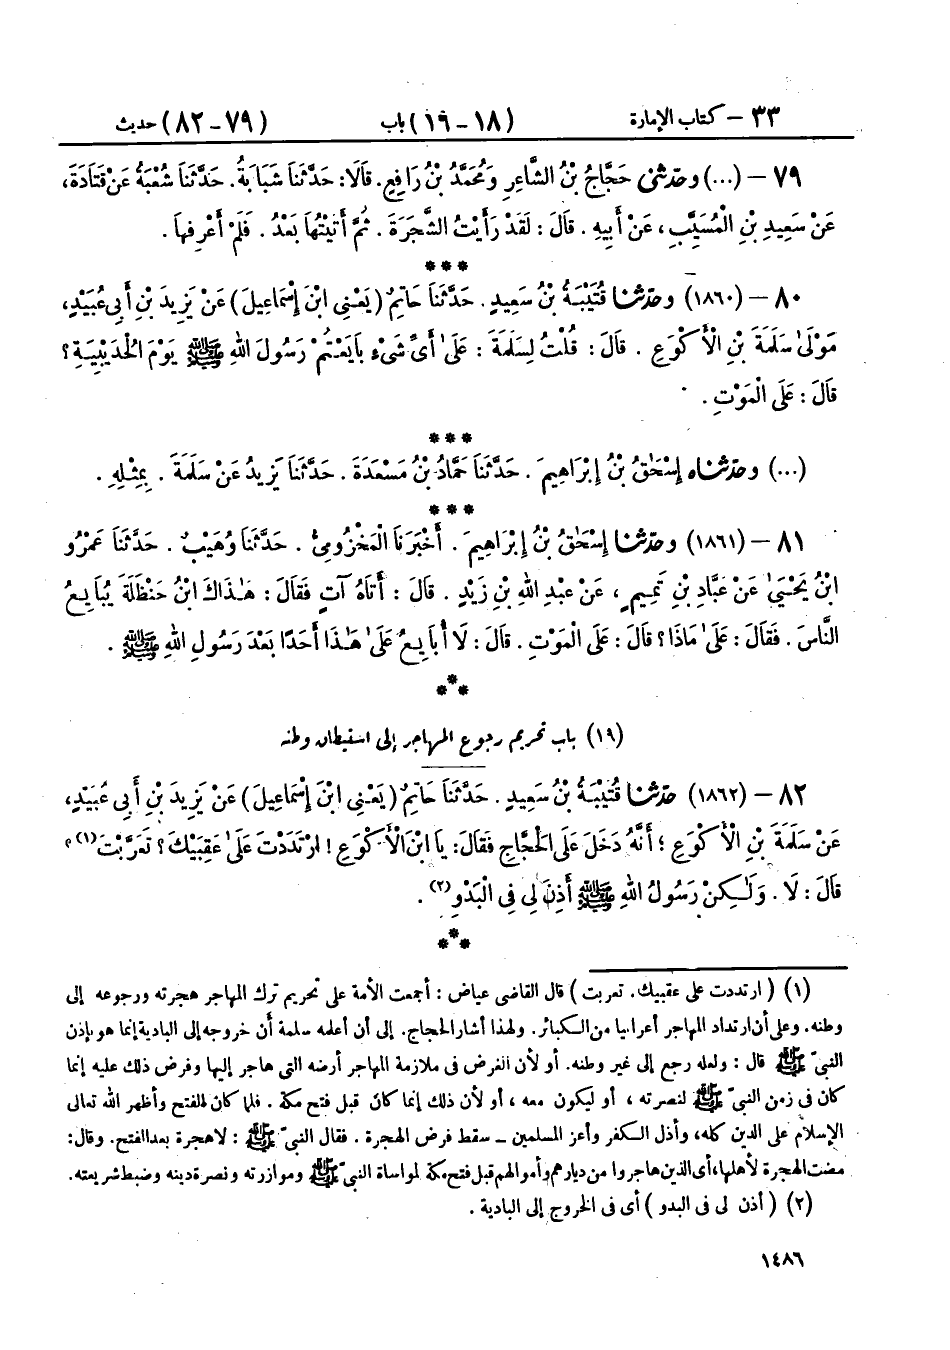 ٣٣ – كتاب الإمارة (١٨ – ١٩) باب (٧٩ – ٨٢) حديث
٧٩ – (...) وحدثني حَجَّاجُ بْنُ الشَّاعِرِ وَمُحَمَّدُ بْنُ رَافِعٍ. قَالَا: حَدَّثَنَا شَبَابَةُ. حَدَّثَنَا شُعْبَةُ عَنْ قَتَادَةَ،
عَنْ سَعِيدِ بْنِ الْمُسَيَّبِ، عَنْ أَبِيهِ. قَالَ: لَقَدْ رَأَيْتُ الشَّجَرَةَ. ثُمَّ أَتَيْتُهَا بَعْدُ. فَلَمْ أَعْرِفْهَا.
***
٨٠ – (١٨٦٠) وحدثنا قُتَيْبَةُ بْنُ سَعِيدٍ. حَدَّثَنَا حَاتِمٌ (يَعْنِي ابْنَ إِسْمَاعِيلَ) عَنْ يَزِيدَ بْنِ أَبِي عُبَيْدٍ،
مَوْلَىٰ سَلَمَةَ بْنِ الْأَكْوَعِ. قَالَ: قُلْتُ لِسَلَمَةَ: عَلَىٰ أَيِّ شَيْءٍ بَايَعْتُمْ رَسُولَ اللهِ ﷺ يَوْمَ الْحُدَيْبِيَةِ؟
قَالَ: عَلَى الْمَوْتِ.
***
(...) وحدثناه إِسْحَٰقُ بْنُ إِبْرَاهِيمَ. حَدَّثَنَا حَمَّادُ بْنُ مَسْعَدَةَ. حَدَّثَنَا يَزِيدُ عَنْ سَلَمَةَ. بِمِثْلِهِ.
***
٨١ – (١٨٦١) وحدثنا إِسْحَٰقُ بْنُ إِبْرَاهِيمَ. أَخْبَرَنَا الْمَخْزُومِيُّ. حَدَّثَنَا وُهَيْبٌ. حَدَّثَنَا عَمْرُو
ابْنُ يَحْيَىٰ عَنْ عَبَّادِ بْنِ تَمِيمٍ، عَنْ عَبْدِ اللهِ بْنِ زَيْدٍ. قَالَ: أَتَاهُ آتٍ فَقَالَ: هَٰذَاكَ ابْنُ حَنْظَلَةَ يُبَايِعُ
النَّاسَ. فَقَالَ: عَلَىٰ مَاذَا؟ قَالَ: عَلَى الْمَوْتِ. قَالَ: لَا أُبَايِعُ عَلَىٰ هَٰذَا أَحَدًا بَعْدَ رَسُولِ اللهِ ﷺ.
***
(١٩) باب تحريم رجوع المهاجر إلى استيطان وطنه
٨٢ – (١٨٦٢) حدثنا قُتَيْبَةُ بْنُ سَعِيدٍ. حَدَّثَنَا حَاتِمٌ (يَعْنِي ابْنَ إِسْمَاعِيلَ) عَنْ يَزِيدَ بْنِ أَبِي عُبَيْدٍ،
عَنْ سَلَمَةَ بْنِ الْأَكْوَعِ؛ أَنَّهُ دَخَلَ عَلَى الْحَجَّاجِ فَقَالَ: يَا ابْنَ الْأَكْوَعِ! ارْتَدَدْتَ عَلَىٰ عَقِبَيْكَ؟ تَعَرَّبْتَ(١)؟
قَالَ: لَا. وَلَٰكِنْ رَسُولُ اللهِ ﷺ أَذِنَ لِي فِي الْبَدْوِ(٢).
***
(١) (ارتددت على عقبيك. تعربت) قال القاضي عياض: أجمعت الأمة على تحريم ترك المهاجر هجرته ورجوعه إلى
وطنه. وعلى أن ارتداد المهاجر أعرابيا من الكبائر. ولهذا أشار الحجاج. إلى أن أعلمه سلمة أن خروجه إلى البادية إنما هو بإذن
النبيّ ﷺ قال: ولعله رجع إلى غير وطنه. أو لأن الغرض في ملازمة المهاجر أرضه التي هاجر إليها وفرض ذلك عليه إنما
كان في زمن النبيّ ﷺ لنصرته، أو ليكون معه، أو لأن ذلك إنما كان قبل فتح مكة. فلما كان الفتح وأظهر الله تعالى
الإسلام على الدين كله، وأذل الكفر وأعز المسلمين ـ سقط فرض الهجرة. فقال النبيّ ﷺ: لا هجرة بعد الفتح. وقال:
مضت الهجرة لأهلها، أي الذين هاجروا من ديارهم وأموالهم قبل فتح مكة لمواساة النبيّ ﷺ وموازرته ونصرة دينه وضبط شريعته.
(٢) (أذن لي في البدو) أي في الخروج إلى البادية.
١٤٨٦